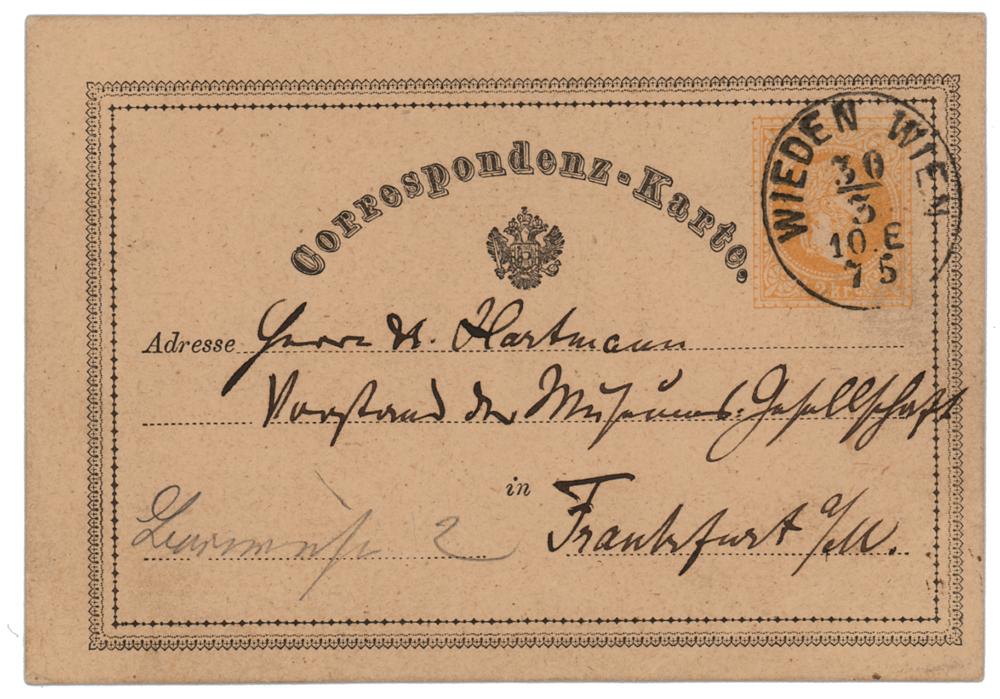 Correspondenz-Karte.
WIEDEN WIEN
30/3
10.E
75
2 kr.
Adresse Herrn H. Hartmann
Vorstand der Museums-Gesellschaft
in Frankfurt a/M.
2